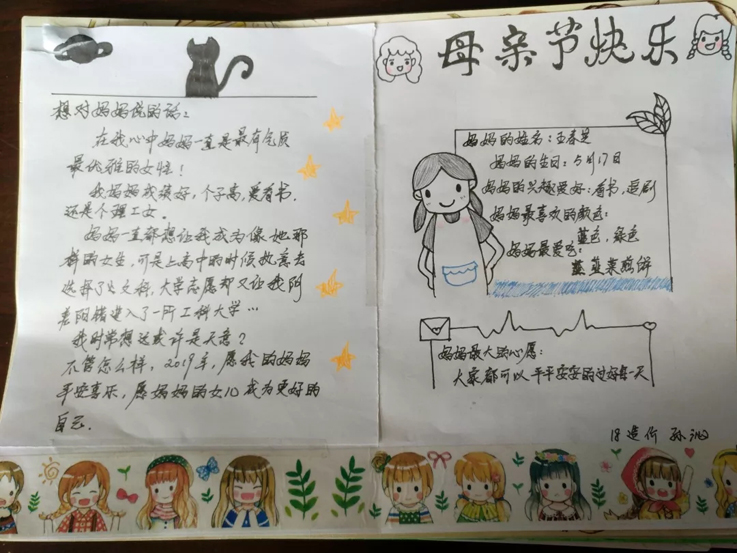 想对妈妈说的话：
在我心中妈妈一直是最有气质
最优雅的女性！
我妈妈成绩好，个子高，爱看书，
还是个理工女。
妈妈一直都想让我成为像她那
样的女生，可是上高中的时候我意去
选择了文科，大学志愿却又让我阴
差阳错进入了一所工科大学…
我时常想这或许是天意？
不管怎么样，2019年，愿我的妈妈
平安喜乐，愿妈妈的女儿成为更好的
自己.
母亲节快乐
妈妈的姓名：王春芝
妈妈的生日：5月17日
妈妈的兴趣爱好：看书，追剧
妈妈最喜欢的颜色：
蓝色，绿色
妈妈最爱吃：
韭菜煎饼
妈妈最大的心愿：
大家都可以平平安安的过好每一天
18造价 孙